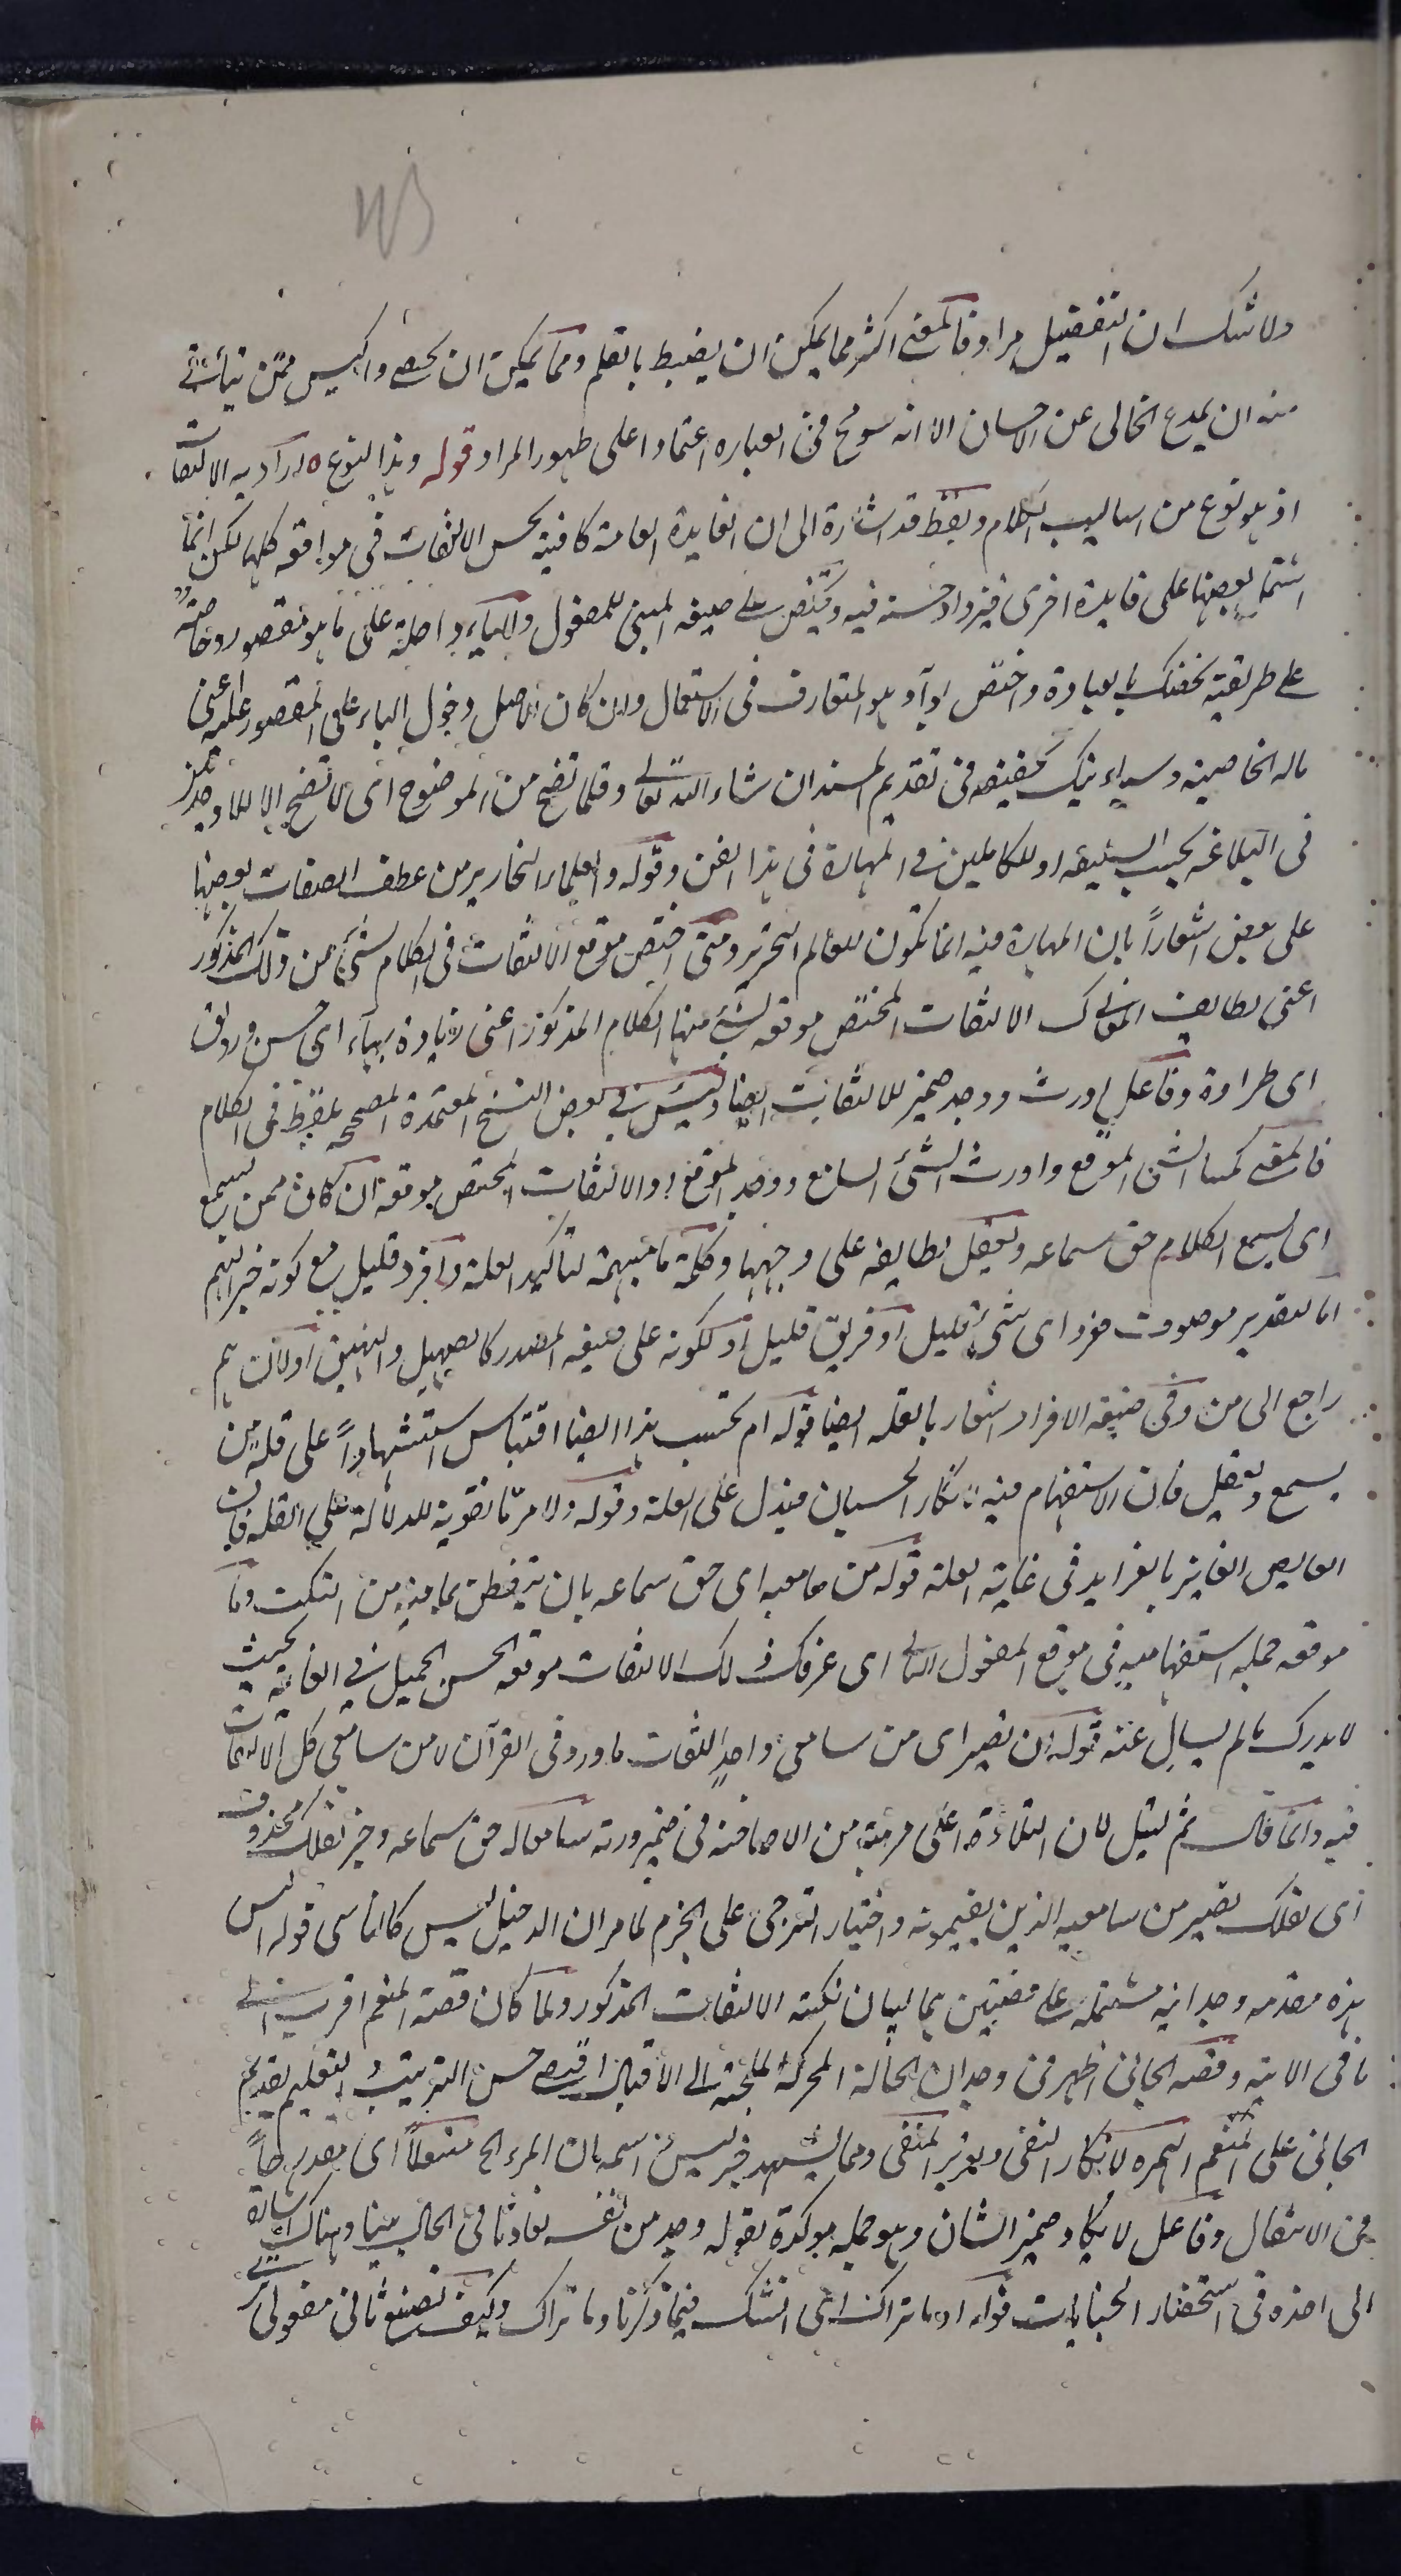 ولا شك ان التفضيل مراد فالمعنى اكثر مما يمكن ان يضبط بالقلم ومما يمكن ان يحصى واكيس ممن يتأتى
منه ان يمدع الخالى عن الاحسان الا انه سومح فى العباره اعتمادا على ظهور المراد قوله وهذا النوع اراد به الالتفات
اذ هو نوع من اساليب الكلام ولفظ قد اشارة الى ان الفايدة العامة كافية لحسن الالتفات فى مواقعه كلها لكن انما
اشتمل بعضها على فايدة اخرى فيزداد حسنه فيه وتختص على صيغه المبنى للمفعول والباء داخلة على ما هو مقصور وخاصة
على طريقة نخصك بالعبادة واختص بوا وهو المتعارف فى الاستعمال وان كان الاصل دخول الباء على المقصور عليه اعنى
ماله الخاصية وسيأتيك تحقيقه فى تقديم المسند ان شاء الله تعالى وقلما تتضح من الموضوع اى لا تتضح الا للاوحدين
فى البلاغه بحسب السليقه او للكاملين فى المهارة فى هذا الفن وقوله والعلماء النحارير من عطف الصفات بعضها
على بعض اشعاراً بان المهارة فيه انما تكون للعالم النحرير ومتى اختص موقع الالتفات فى الكلام بشئ من ذلك المذكور
اعنى لطايف المعانى كسا الالتفات المختص موقعه بشئ منها الكلام المذكور اعنى زيادة بهاء اى حسن ورونق
اى طراوة وفاعل اورث ووجد ضمير للالتفات ايضا وليس فى بعض النسخ المعتمدة المصححه لفظ فى الكلام
فالمعنى كسا الشئ الموقع واورث الشئ السامع ووجد الموقع او الالتفات المختص موقعه ان كان ممن يسمع
اى يسمع الكلام حق سماعه ويعقل لطايفه على وجهها وكلمة ما مبهمة لتاكيد القلة وافرد قليل مع كونه خبرا لهم
اما لتقدير موصوف مفرد اى شئ قليل او فريق قليل او لكونه على صيغه المصدر كالصهيل والنهيق او لان هم
راجع الى من وفى صيغه الافراد اشعار بالقله ايضا قوله ام تحسب هذا ايضا اقتباس استشهاداً على قلة من
يسمع ويعقل فان الاستفهام فيه لانكار الحسبان فيدل على القلة وقوله ولامر ما تقوية للدلالة على القله فان
الغايص الفايز بالفرايد فى غاية القلة قوله من سامعيه اى حق سماعه بان يتفطن بما فيه من النكت وما
موقعه جمله استفهاميه فى موقع المفعول الثانى اى عرفك ذلك الالتفات موقعه الحسن الجميل فى الغاية بحيث
لا يدرك ما لم يسأل عنه قوله ان تصير اى من سامعى واحد التفات ما ورد فى القرآن لا من سامعى كل الالتفات
فيه وانما قال ثم لتيل لان التلاوة اعلى مرتبة من الاصاخة فى صيرورته سامعا له حق سماعه وخبر لعلك محذوف
اى لعلك تصير من سامعيه الذين يفهمونه واختيار الترجى على الجزم لما مر ان الدخيل ليس كالناشى قوله اليس
هذه مقدمه وجدانيه مشتمله على قضيتين هما لبيان نكته الالتفات المذكور ولما كان قصة المنعم اقرب الى
ما فى الاية وقصه الجانى اظهر فى وجدان الحالة المحركة الملجئة الى الاقبال اقتضى حسن الترتيب والتعليم تقديم
الجانى على المنعم الهمزه لانكار النفى وتقرير المنفى ومما يشهد خبر ليس اسمه بان المرء الخ منتعلاً اى مصدرها
من الانتقال وفاعل لا يكاد ضمير الشان وهو جمله موكدة لقوله وجد من نفسه تفاوتا فى الحال بينا وهناك اشارة
الى اخذه فى استحضار الجنايات قوله او ما تراك اى اتشك فيما ذكرنا وما تراك وكيف تصنع ثانى مفعولى ترى